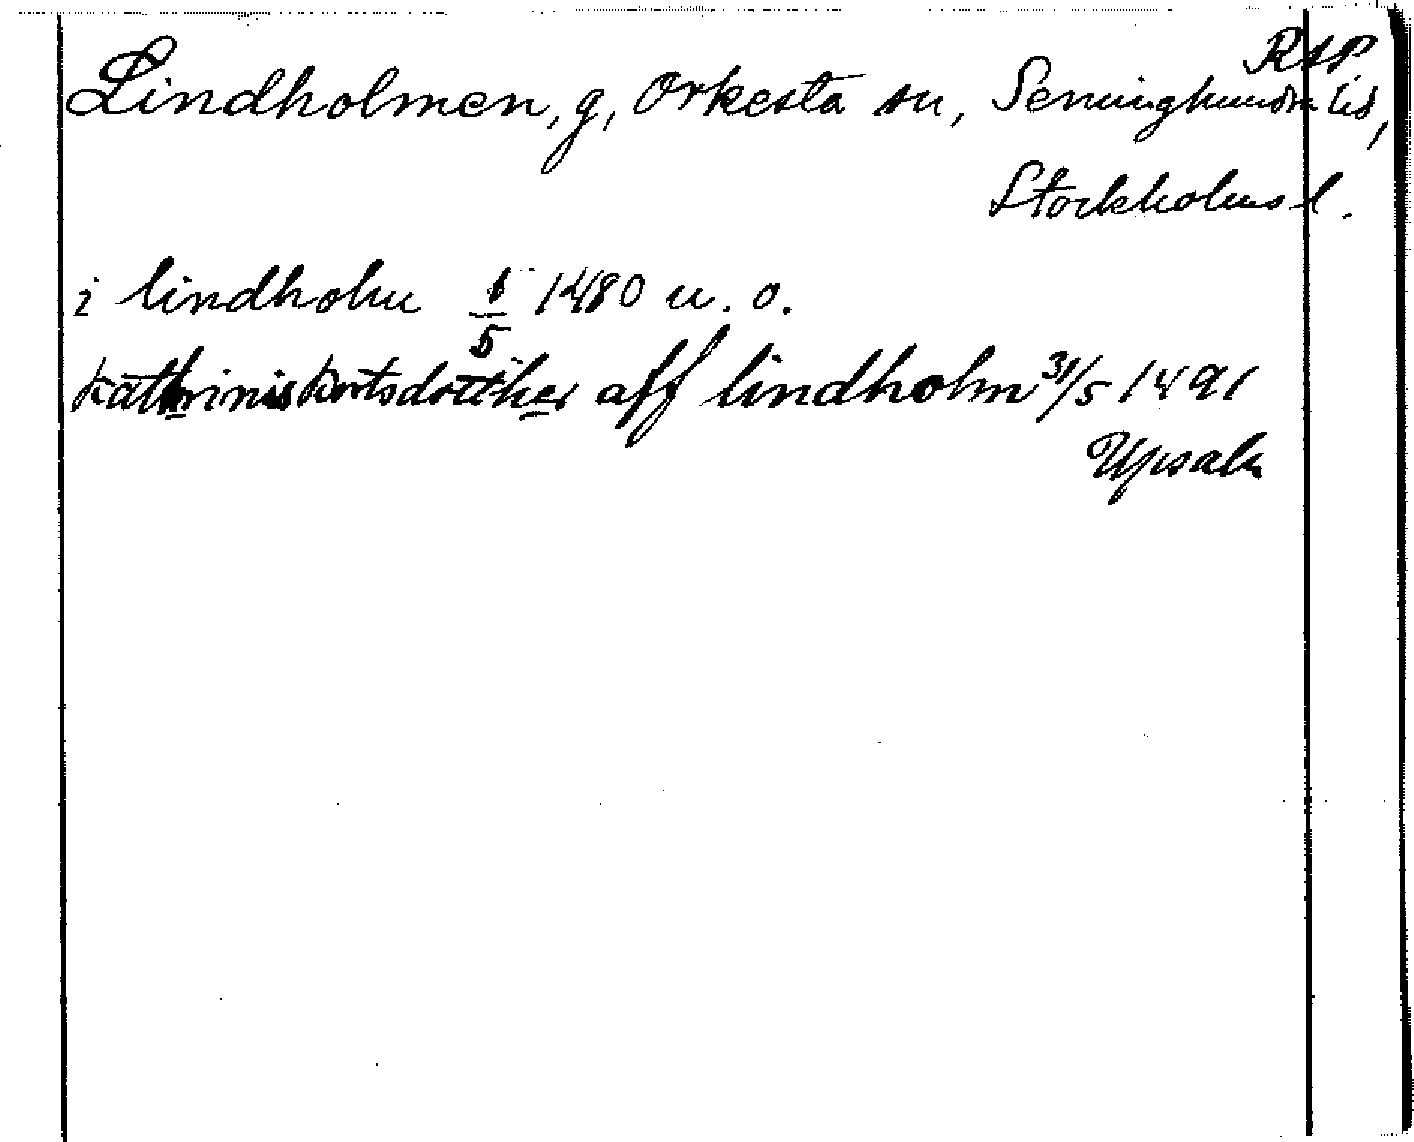 RAP
Lindholmen, g, Orkesta sn, Seminghundra hd,
Stockholms l.
i lindholm 1/5 1480 u. o.
kathrinis kortsdotther aff lindholm 31/5 1491
Upsala